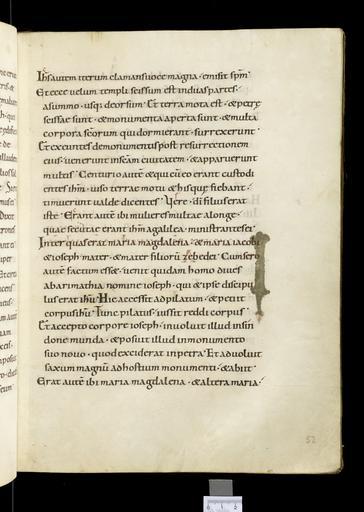 Ihs autem iterum clamans uoce magna · emisit spm̄ ·
Et ecce uelum templi scissum est induas partes ·
asummo · usq; deorsum · Et terra mota est · & petrę
scissae sunt · & monumenta aperta sunt · & multa
corpora scōrum qui dormierant · surrexerunt ·
Et exeuntes demonumentis post resurrectionem
eius · uenerunt insc̄am ciuitatem · & apparuerunt
multis · Centurio autē & qui cū eo erant custodi
entes ihm̄ · uiso terrae motu & his quę fiebant ·
timuerunt ualde dicentes · Vere · dī filius erat
iste · Erant autē ibi mulieres multae alonge ·
quae secutae erant ihm̄ agalilea · ministrantes ei ·
Inter quas erat maria magdalena · & maria iacobi
& ioseph mater · & mater filiorū zebedei · Cum sero
autē factum esset · uenit quidam homo diues
abarimathia nomine ioseph · qui & ipse discipu
lus erat ihū · Hic accessit adpilatum · & petiit
corpus ihū · Tunc pilatus · iussit reddi corpus ·
Et accepto corpore ioseph · inuoluit illud insin
done munda · & posuit illud inmonumento
suo nouo · quod exciderat inpetra · Et aduoluit
saxum magnū adhostium monumenti · & abiit ·
Erat autē ibi maria magdalena · & altera maria ·
52